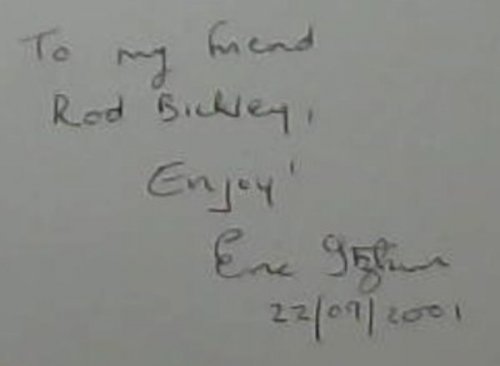 To my friend
Rod Bickley,
Enjoy!
Eric
22/09/2001